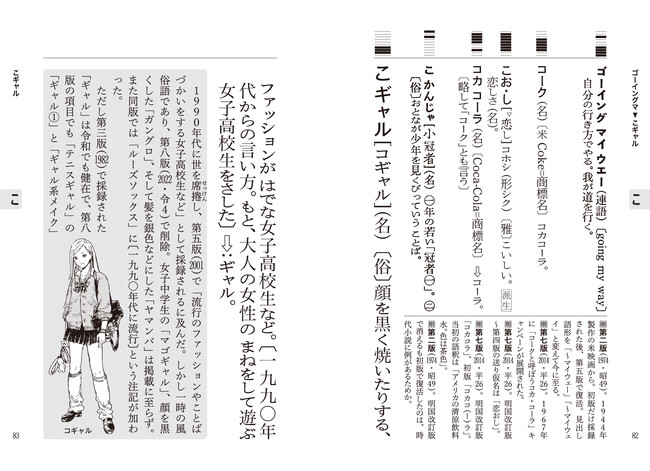 ゴーイングマ▼こギャル
こ
82
ゴーイング マイ ウエー（連語）〔going my way〕
自分の行き方でやる。我が道を行く。
コーク（名）〔米 Coke=商標名〕 コカコーラ。
こお・し[▽恋し]コホシ（形シク）〔雅〕こいしい。 派生
恋しさ（名）。
コカ コーラ（名）〔Coca-Cola=商標名〕 ⇨コーラ。
〔略して「コーク」とも言う〕
こ かんじゃ[小冠者]（名）㊀年の若い「冠者㊀」。㊁
〔俗〕おとなが少年を見くびっていうことば。
こギャル[コギャル]（名）〔俗〕顔を黒く焼いたりする、
第二版（1974・昭49）。1944年
製作の米映画から。初版だけ採録
された後、第五版で復活。見出し
語形を「～マイウェー」「～マイウェ
イ」と変えて今に至る。
第七版（2014・平26）。1967年
に「コークと呼ぼうコカ・コーラ」キ
ャンペーンが展開された。
第七版（2014・平26）。明国改訂版
～第四版の送り仮名は「恋おし」。
第七版（2014・平26）。明国改訂版
「コカコラ」、初版「コカコ(ー)ラ」。
当初の語釈は「アメリカの清涼飲料
水。色は茶色」。
第二版（1974・昭49）。明国改訂版
で消えるも初版で復活したのは、時
代小説に例があるためか。
こギャル
こ
83
ファッションがはでな女子高校生など。〔一九九〇年
代からの言い方。もと、大人の女性のまねをして遊ぶ
女子高校生をさした〕⇨:ギャル。
1990年代に世を席捲し、第五版（2001）で「流行のファッションやことば
せっけん
づかいをする女子高校生など」として採録されるに及んだ。しかし一時の風
俗語であり、第八版（2022・令4）で削除。女子中学生の「マゴギャル」、顔を黒
くした「ガングロ」、そして髪を銀色などにした「ヤマンバ」は掲載に至らず。
また同版では「ルーズソックス」に〔一九九〇年代に流行〕という注記が加わ
った。
ただし第三版（1982）で採録された
「ギャル」は令和でも健在で、第八
版の項目でも「テニスギャル」の
「ギャル①」と「ギャル系メイク」
コギャル